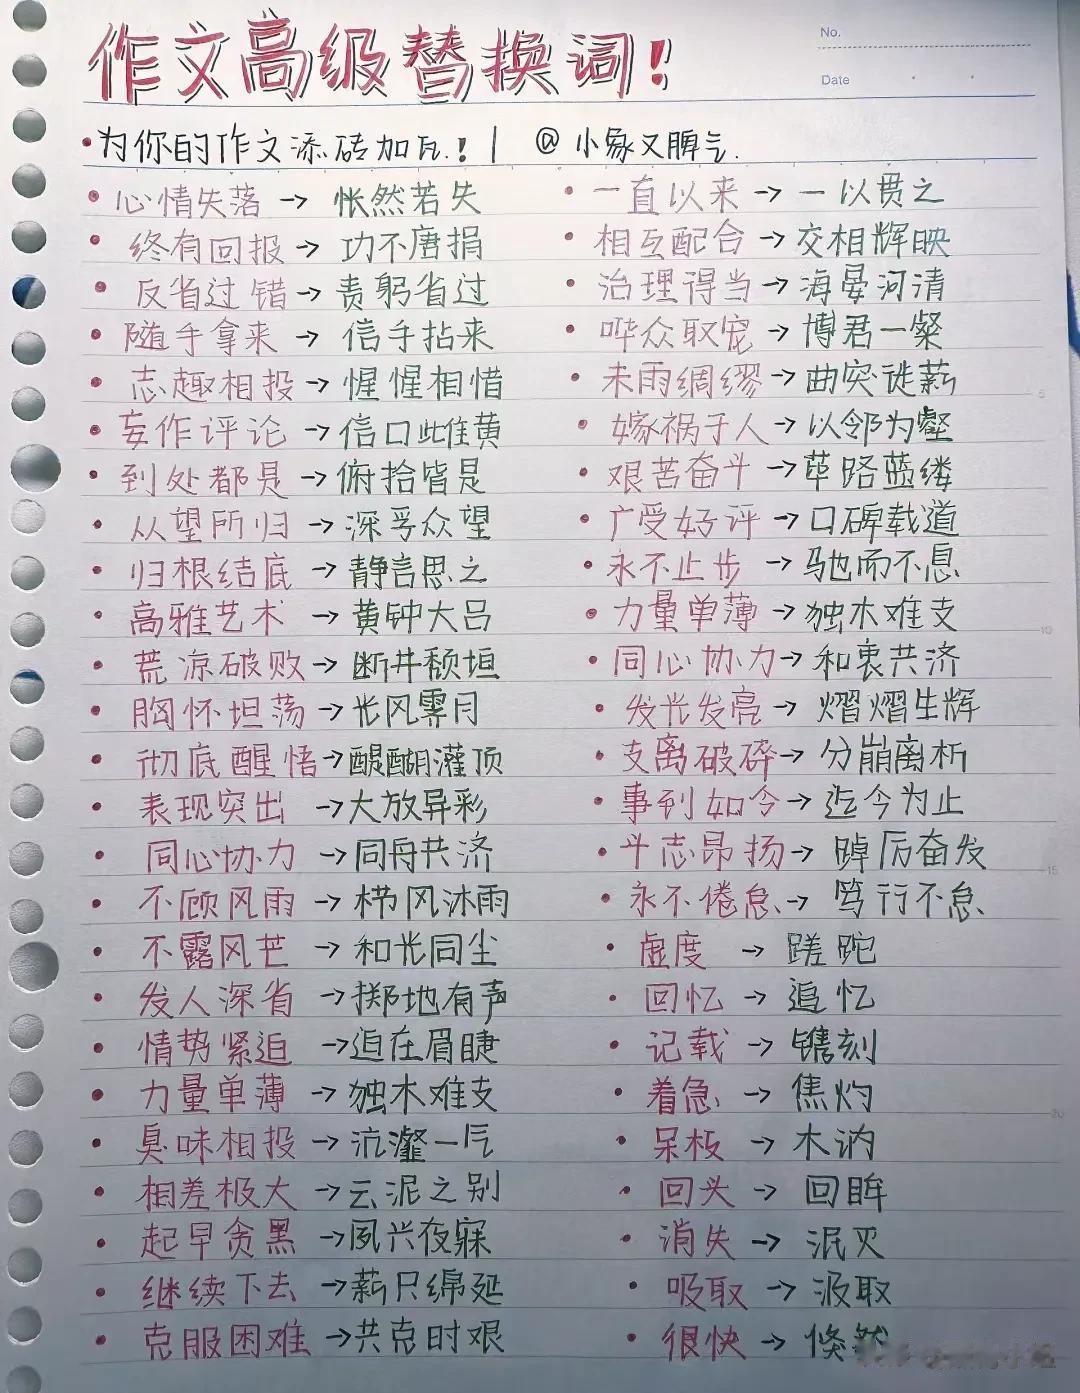 作文高级替换词!
No.
Date
•为你的作文添砖加瓦.! | @小象又脾气.
• 心情失落 → 怅然若失
• 终有回报 → 功不唐捐
• 反省过错 → 责躬省过
• 随手拿来 → 信手拈来
• 志趣相投 → 惺惺相惜
• 妄作评论 → 信口雌黄
• 到处都是 → 俯拾皆是
• 众望所归 → 深孚众望
• 归根结底 → 静言思之
• 高雅艺术 → 黄钟大吕
• 荒凉破败 → 断井颓垣
• 胸怀坦荡 → 光风霁月
• 彻底醒悟 → 醍醐灌顶
• 表现突出 → 大放异彩
• 同心协力 → 同舟共济
• 不顾风雨 → 栉风沐雨
• 不露风芒 → 和光同尘
• 发人深省 → 掷地有声
• 情势紧迫 → 迫在眉睫
• 力量单薄 → 独木难支
• 臭味相投 → 沆瀣一气
• 相差极大 → 云泥之别
• 起早贪黑 → 夙兴夜寐
• 继续下去 → 薪只绵延
• 克服困难 → 共克时艰
• 一直以来 → 一以贯之
• 相互配合 → 交相辉映
• 治理得当 → 海晏河清
• 哗众取宠 → 博君一粲
• 未雨绸缪 → 曲突徙薪
• 嫁祸于人 → 以邻为壑
• 艰苦奋斗 → 荜路蓝缕
• 广受好评 → 口碑载道
• 永不止步 → 驰而不息
• 力量单薄 → 独木难支
• 同心协力 → 和衷共济
• 发光发亮 → 熠熠生辉
• 支离破碎 → 分崩离析
• 事到如今 → 迄今为止
• 斗志昂扬 → 踔厉奋发
• 永不倦怠 → 笃行不怠
• 虚度 → 蹉跎
• 回忆 → 追忆
• 记载 → 镌刻
• 着急 → 焦灼
• 呆板 → 木讷
• 回头 → 回眸
• 消失 → 泯灭
• 吸取 → 汲取
• 很快 → 倏然
5
10
15
20